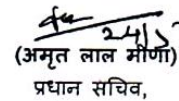 24/5
(अमृत लाल मीणा)
प्रधान सचिव,